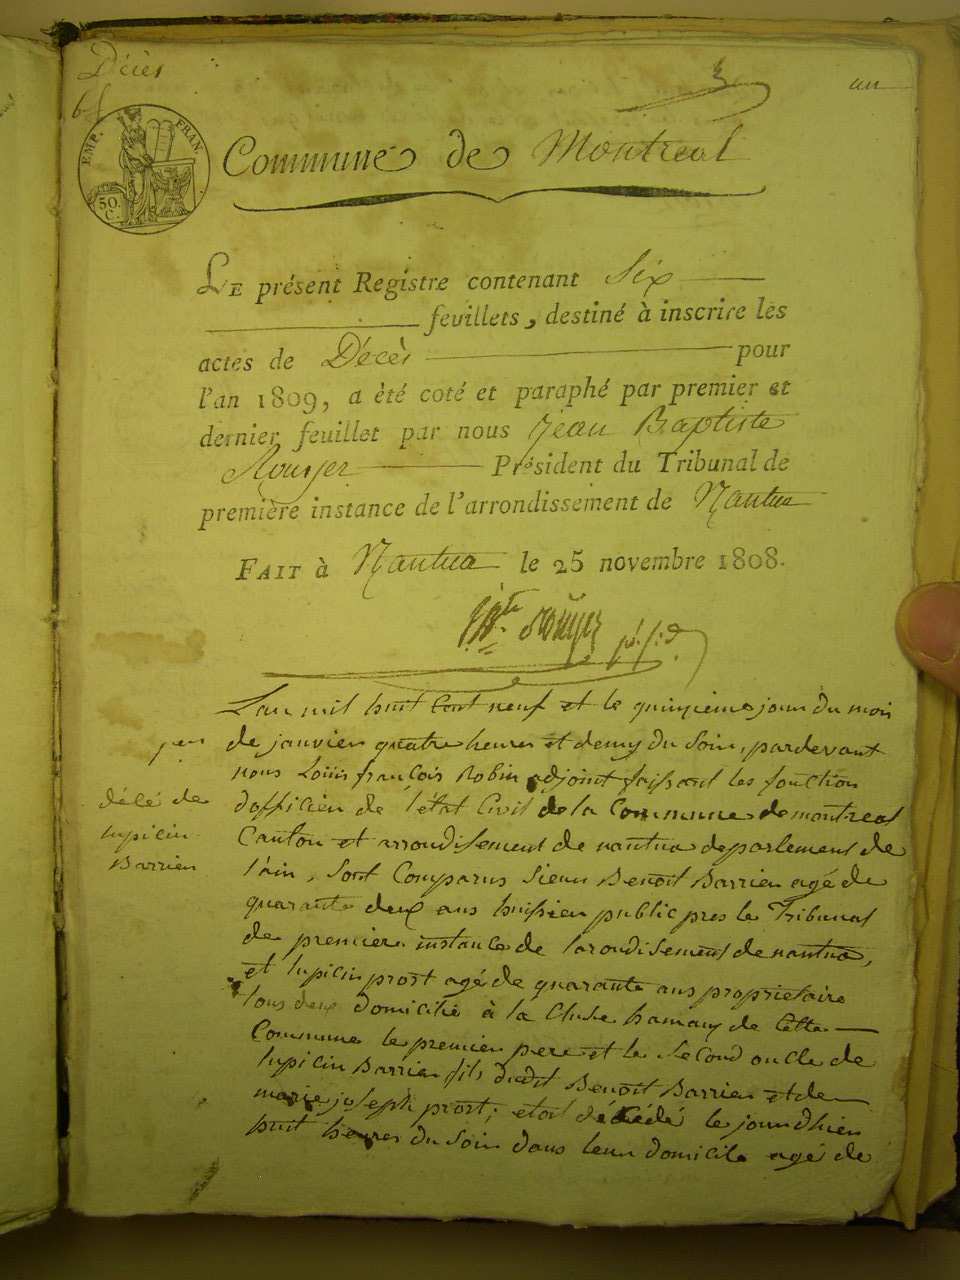 Décès
un
EMP. FRAN.
50. C.
Commune de Montreal
LE présent Registre contenant Six
feuillets, destiné à inscrire les
actes de Décès pour
l'an 1809, a été coté et paraphé par premier et
dernier feuillet par nous Jean Baptiste
Rouyer Président du Tribunal de
première instance de l'arrondissement de Nantua
FAIT à Nantua le 25 novembre 1808.
J. Bte Rouyer
L'an mil huit Cent neuf et le quinzieme jour du mois
de janvier quatre heures et demy du Soir, pardevant
nous Loüis françois Robin adjoint faissant les fonction
dofficier de l'état Civil de la Commune de montreal
Canton et arrondisement de nantua departement de
l'ain, Sont Comparus Sieur Benoît Barrier agé de
quarante deux ans huissier public pres le Tribunal
de premiere instance de larondisement de nantua,
et lupicin prost agé de quarante ans proprietaire
tous deux domicilié à la Cluse hamaux de Cette
Commune le premier pere et le Second oncle de
lupicin Barrier fils dudit Benoît Barrier et de
marie joseph prost; etoit décédé le jour dhier
huit heures du Soir dans leur domicile agé de
décé de
lupicin
Barrier